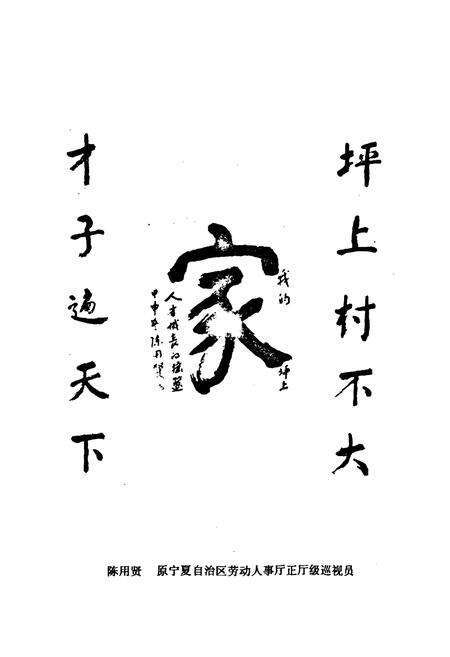 坪上村不大
我的
坪上
家
人才成长的摇篮
甲申冬陈用贤
才子遍天下
陈用贤 原宁夏自治区劳动人事厅正厅级巡视员